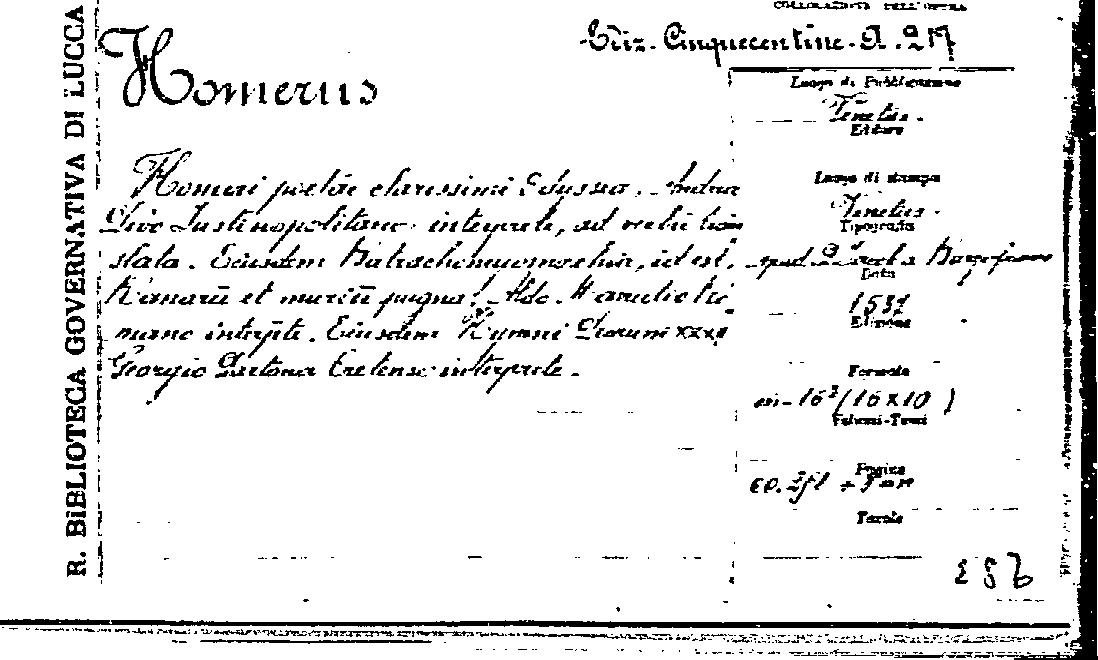 R. BIBLIOTECA GOVERNATIVA DI LUCCA
COLLOCAZIONE DELL'OPERA
Ediz. Cinquecentine. A. 217
Homerus
Homeri poetae clarissimi Odyssea. Andrea
Divo Justinopolitano interprete, ad verbū tran
slata. Eiusdem Batrachomyomachia, id est,
Ranarū et muriū pugna. Aldo Manutio
mano interpte. Eiusdem Hymni Deorum XXXII
Georgio Dartona Cretense interprete.
Luogo di Pubblicazione
Venetiis.
Editore
Luogo di stampa
Venetiis.
Tipografia
apud
Data
1537
Edizione
Formato
in-16° (16x10)
Volumi-Tomi
Pagine
cc. 251 +
Tavole